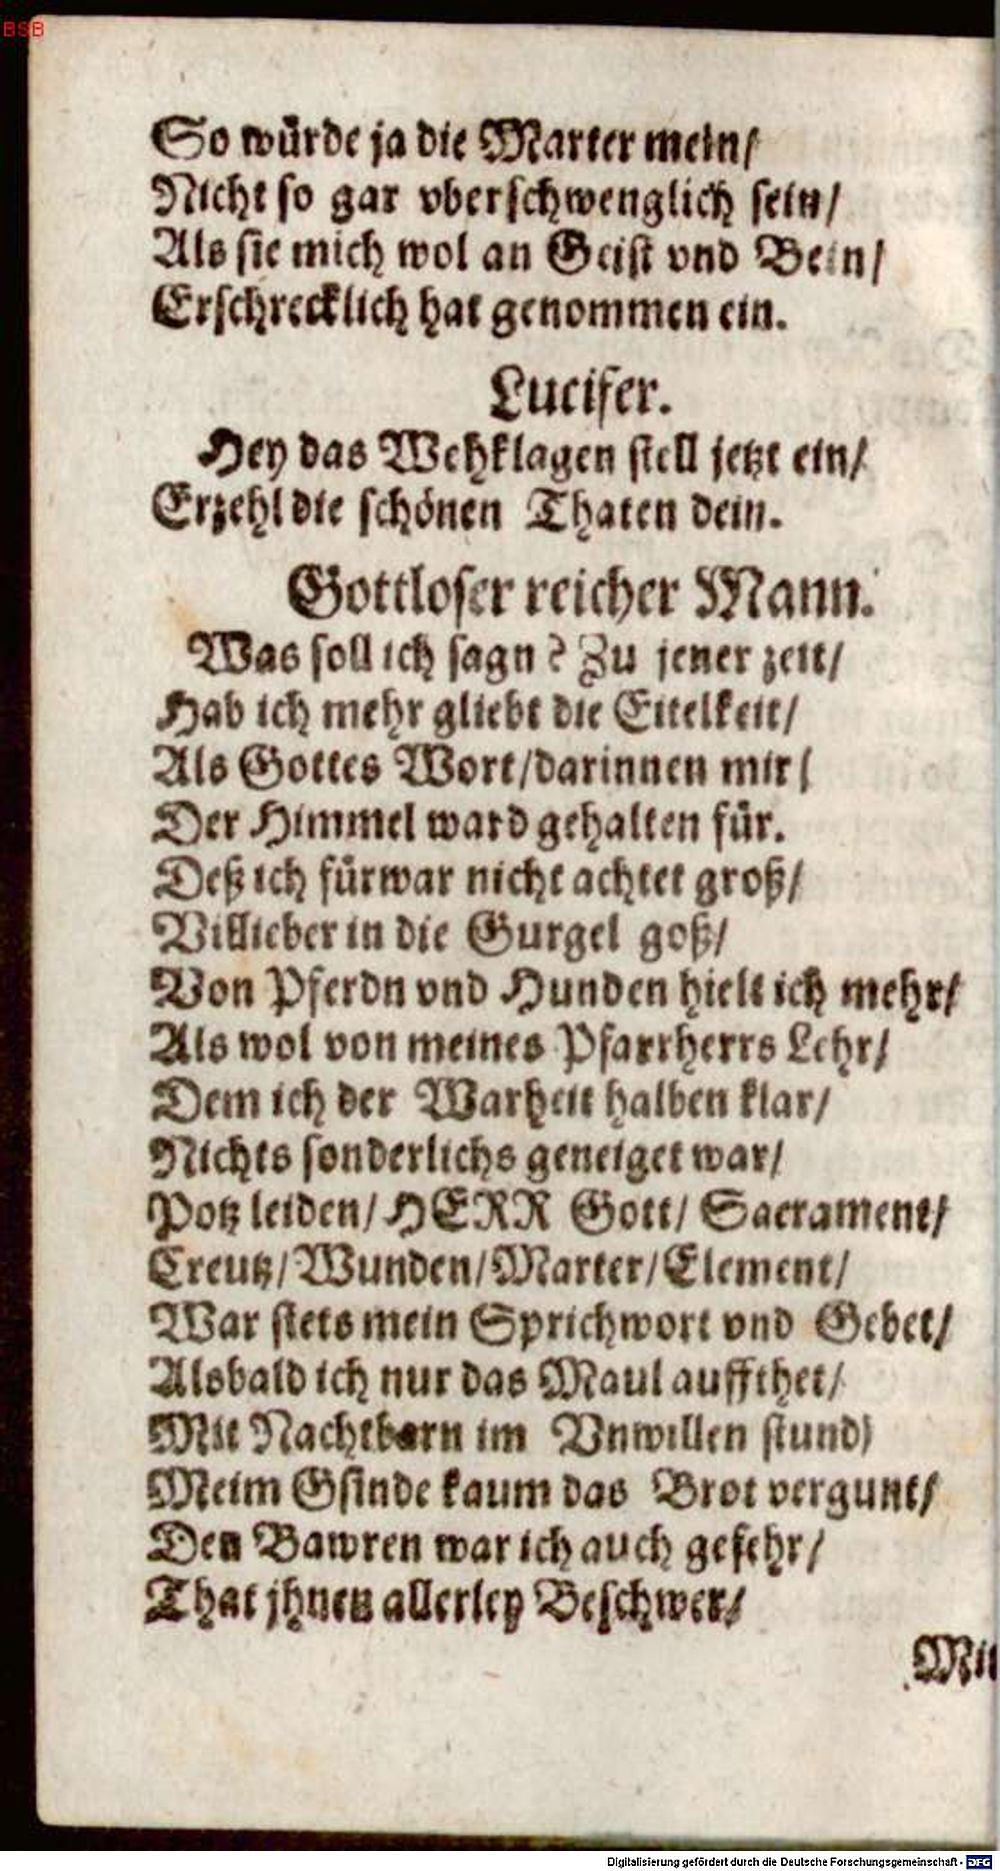 BSB
So würde ja die Marter mein/
Nicht so gar vberschwenglich sein/
Als sie mich wol an Geist vnd Bein/
Erschrecklich hat genommen ein.
Lucifer.
Hey das Wehklagen stell jetzt ein/
Erzehl die schönen Thaten dein.
Gottloser reicher Mann.
Was soll ich sagn? Zu jener zeit/
Hab ich mehr gliebt die Eitelkeit/
Als Gottes Wort/darinnen mir/
Der Himmel ward gehalten für.
Deß ich fürwar nicht achtet groß/
Villieber in die Gurgel goß/
Von Pferdn vnd Hunden hielt ich mehr/
Als wol von meines Pfarrherrs Lehr/
Dem ich der Warheit halben klar/
Nichts sonderlichs geneiget war/
Potz leiden/HERR Gott/Sacrament/
Creutz/Wunden/Marter/Element/
War stets mein Sprichwort vnd Gebet/
Alsbald ich nur das Maul auffthet/
Mit Nachtbarn im Vnwillen stund)
Meim Gsinde kaum das Brot vergunt/
Den Bawren war ich auch gefehr/
That jhnen allerley Beschwer/
Mit
Digitalisierung gefördert durch die Deutsche Forschungsgemeinschaft - DFG